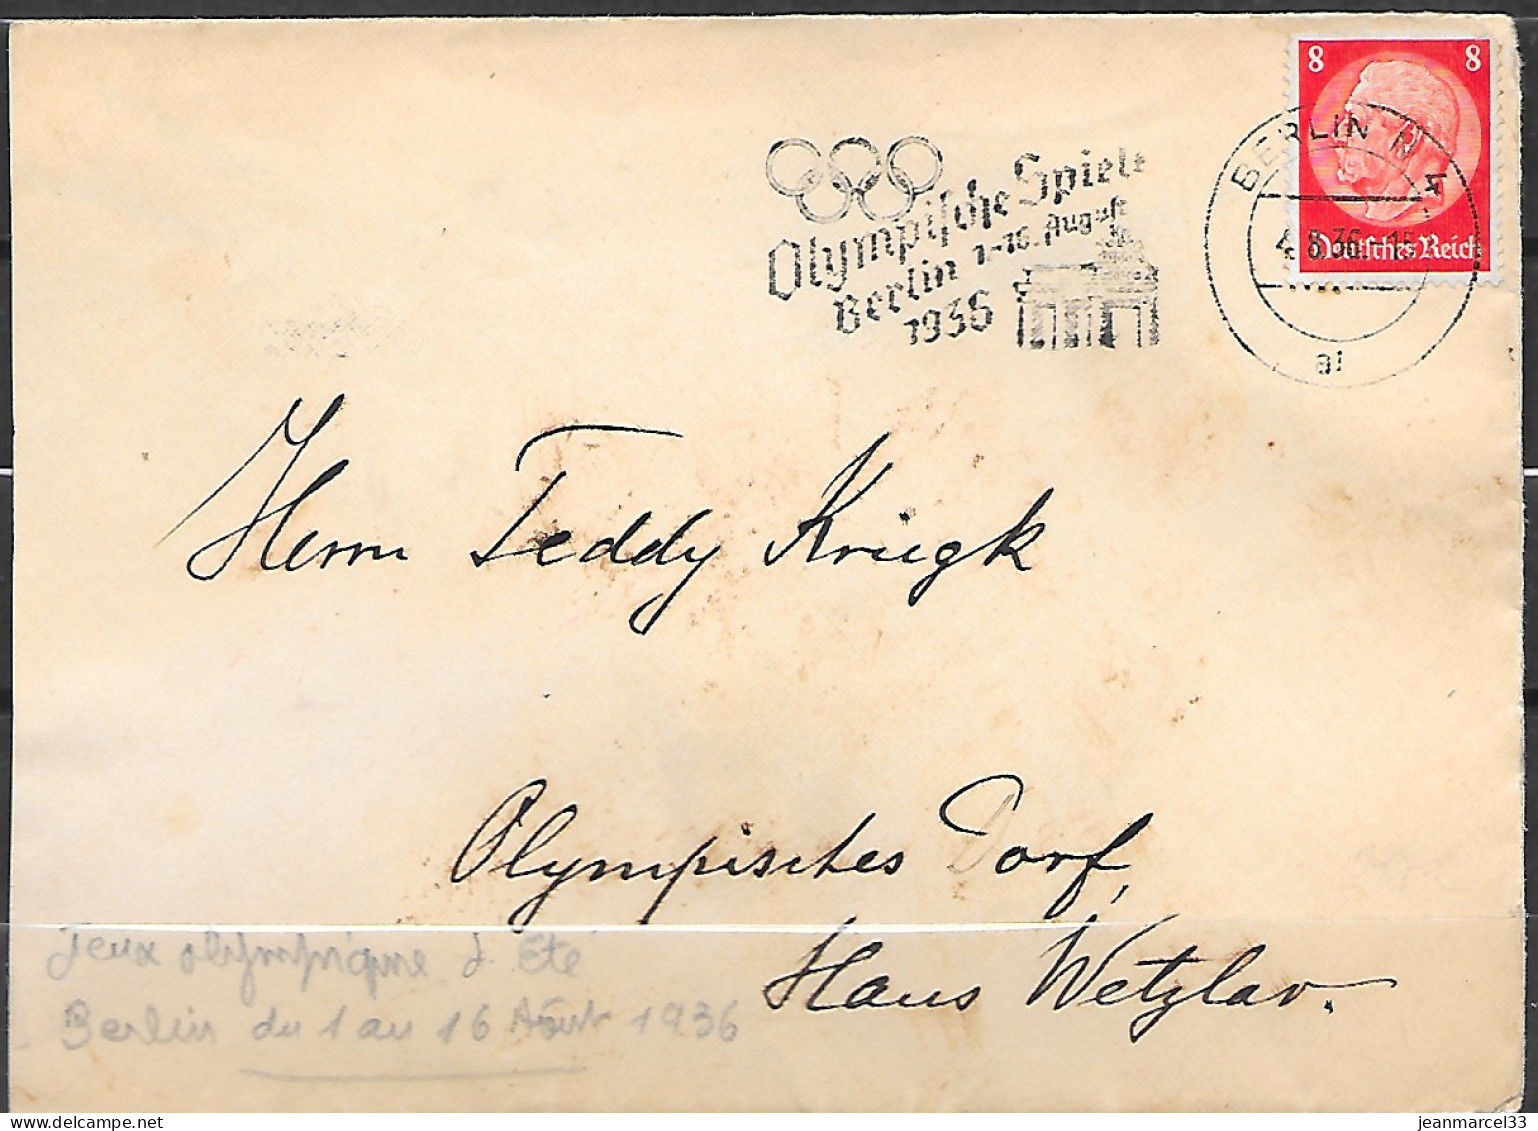 8 8
Deutsches Reich
BERLIN N 4
4.8.36. 15
al
Olympische Spiele
Berlin 1-16. August
1936
Herrn Teddy Kriegk
Olympisches Dorf,
Haus Wetzlar.
Jeux olympique d'Eté
Berlin du 1 au 16 Août 1936
jeanmarcel33